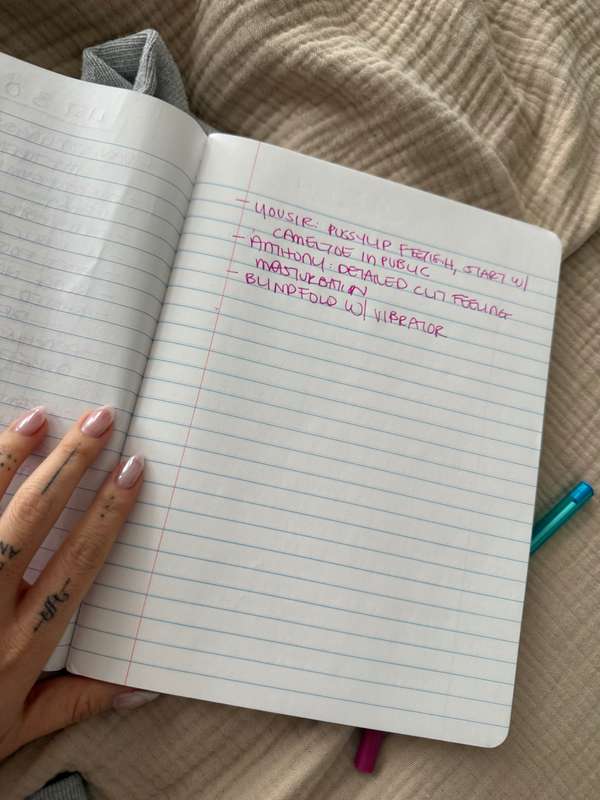 - YOUSIR: PUSSYLIP FETISH, START W/
CAMELTOE IN PUBLIC
- ANTHONY: DETAILED CLIT FEELING
MASTURBATION
- BLINDFOLD W/ VIBRATOR